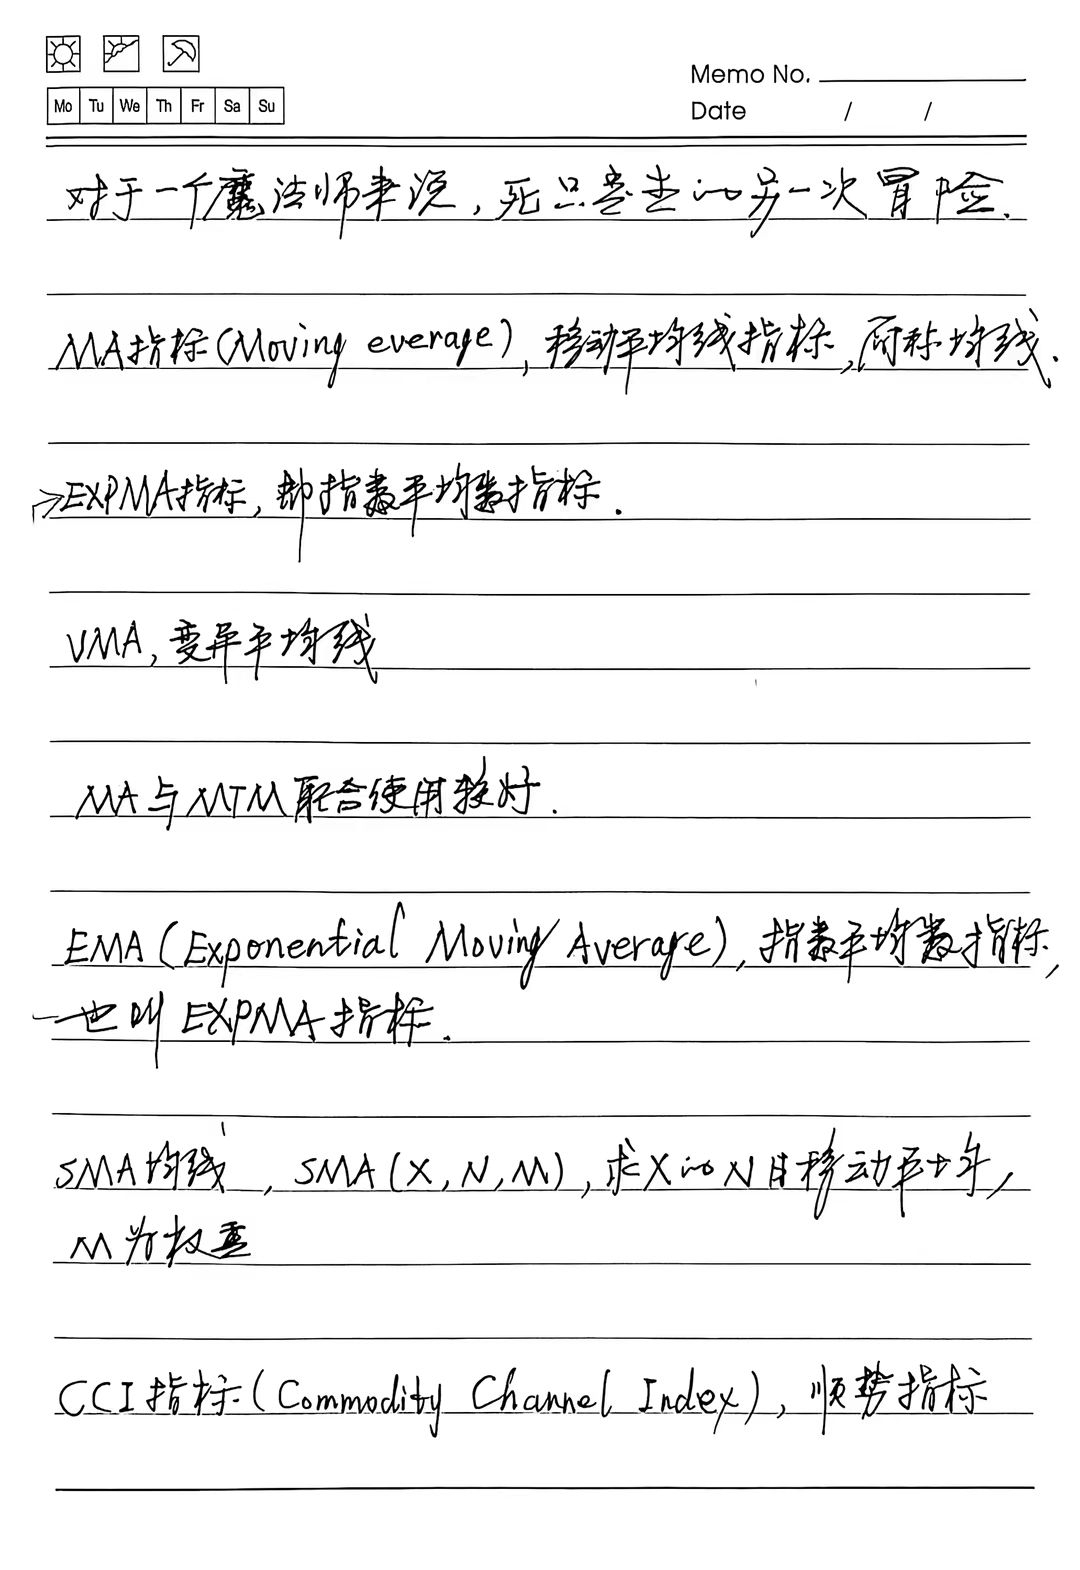 Memo No.
Mo Tu We Th Fr Sa Su
Date / /
对于一个魔法师来说，死只是的另一次冒险.
MA指标(Moving everage)，移动平均线指标，简称均线.
EXPMA指标，即指数平均数指标.
VMA，变异平均线
MA与MTM配合使用较好.
EMA(Exponential Moving Average)，指数平均数指标，
也叫EXPMA指标.
SMA均线，SMA(X,N,M)，求X的N日移动平均，
M为权重
CCI指标(Commodity Channel Index)，顺势指标